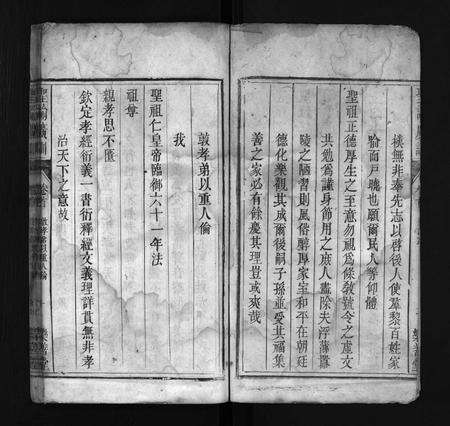 樸無非奉先志以啓後人使羣黎百姓家
喻而戶曉也願爾兵民等仰體
聖祖正德厚生之至意勿視為條教號令之虛文
共勉為謹身節用之庶人盡除夫浮薄囂
陵之陋習則風俗醇厚家室和平在朝廷
德化樂觀其成爾後嗣子孫並受其福積
善之家必有餘慶其理豈或爽哉
敦孝弟以重人倫
我
聖祖仁皇帝臨御六十一年法
祖尊
親孝思不匱
欽定孝經衍義一書衍釋經文義理詳貫無非孝
治天下之意故